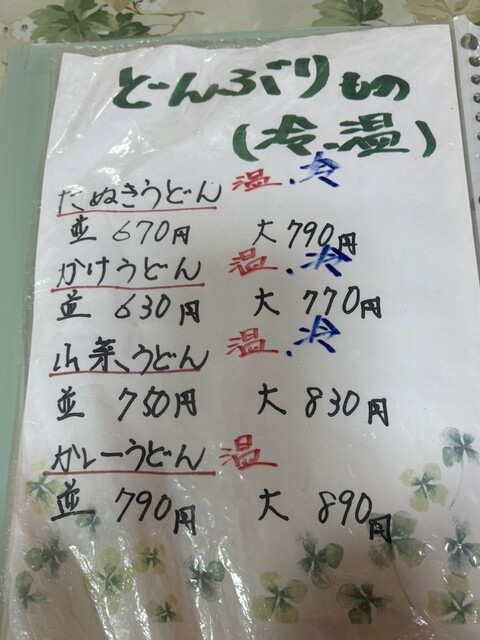 どんぶりもの
(冷、温)
たぬきうどん 温、冷
並 670円 大 790円
かけうどん 温、冷
並 630円 大 770円
山菜うどん 温、冷
並 750円 大 830円
カレーうどん 温
並 790円 大 890円